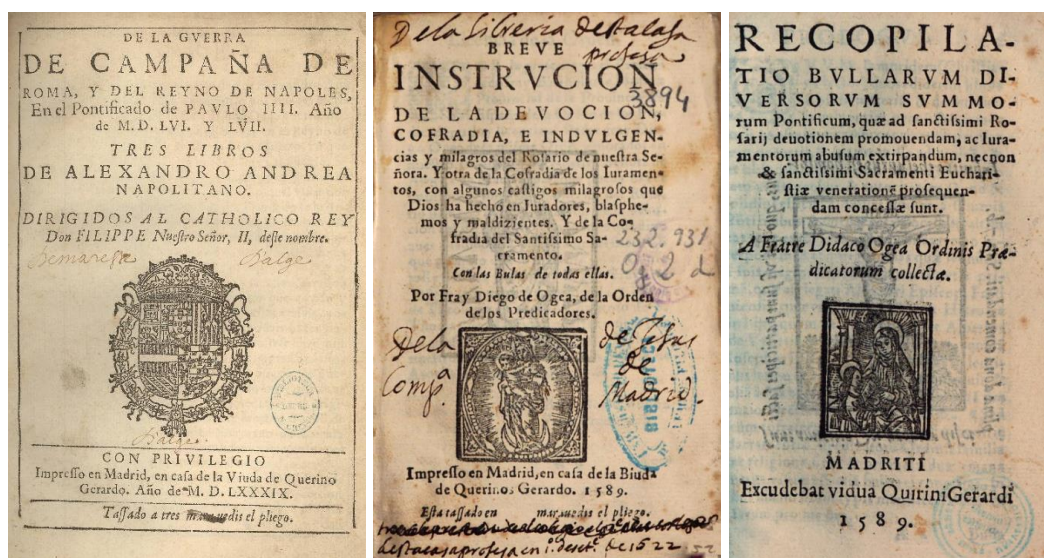 DE LA GVERRA
DE CAMPAÑA DE
ROMA, Y DEL REYNO DE NAPOLES,
En el Pontificado de PAVLO IIII. Año
de M.D.LVI. Y LVII.
TRES LIBROS
DE ALEXANDRO ANDREA
NAPOLITANO.
DIRIGIDOS AL CATHOLICO REY
Don FILIPPE Nueſtro Señor, II, deſte nombre.
CON PRIVILEGIO
Impreſſo en Madrid, en caſa de la Viuda de Querino
Gerardo. Año de M. D. LXXXIX.
Taſſado a tres marauedis el pliego.
De la libreria
BREVE
profesa
INSTRVCION
3894
DE LA DEVOCION,
COFRADIA, E INDVLGEN-
cias y milagros del Roſario de nueſtra Se-
ñora. Y otra de la Cofradia de los Iuramen-
tos, con algunos caſtigos milagroſos que
Dios ha hecho en Iuradores, blaſphe-
mos y maldizientes. Y de la Co-
fradia del Santiſsimo Sa-
cramento.
232.931
Og 2 d
Con las Bulas de todas ellas.
Por Fray Diego de Ogea, de la Orden
de los Predicadores.
de la Comp.ª de Jesus de Madrid.
Impreſſo en Madrid, en caſa de la Biuda
de Querino Gerardo. 1589.
Eſta taſſado en marauedis el pliego.
RECOPILA-
TIO BVLLARVM DI-
VERSORVM SVMMO-
rum Pontificum, quæ ad ſanctiſsimi Ro-
ſarij deuotionem promouendam, ac Iura-
mentorum abuſum extirpandum, necnon
& ſanctiſsimi Sacramenti Euchari-
ſtiæ venerationẽ proſequen-
dam conceſſæ ſunt.
A Fratre Didaco Ogea Ordinis Præ-
dicatorum collectæ.
MADRITI
Excudebat vidua Quirini Gerardi
1589.